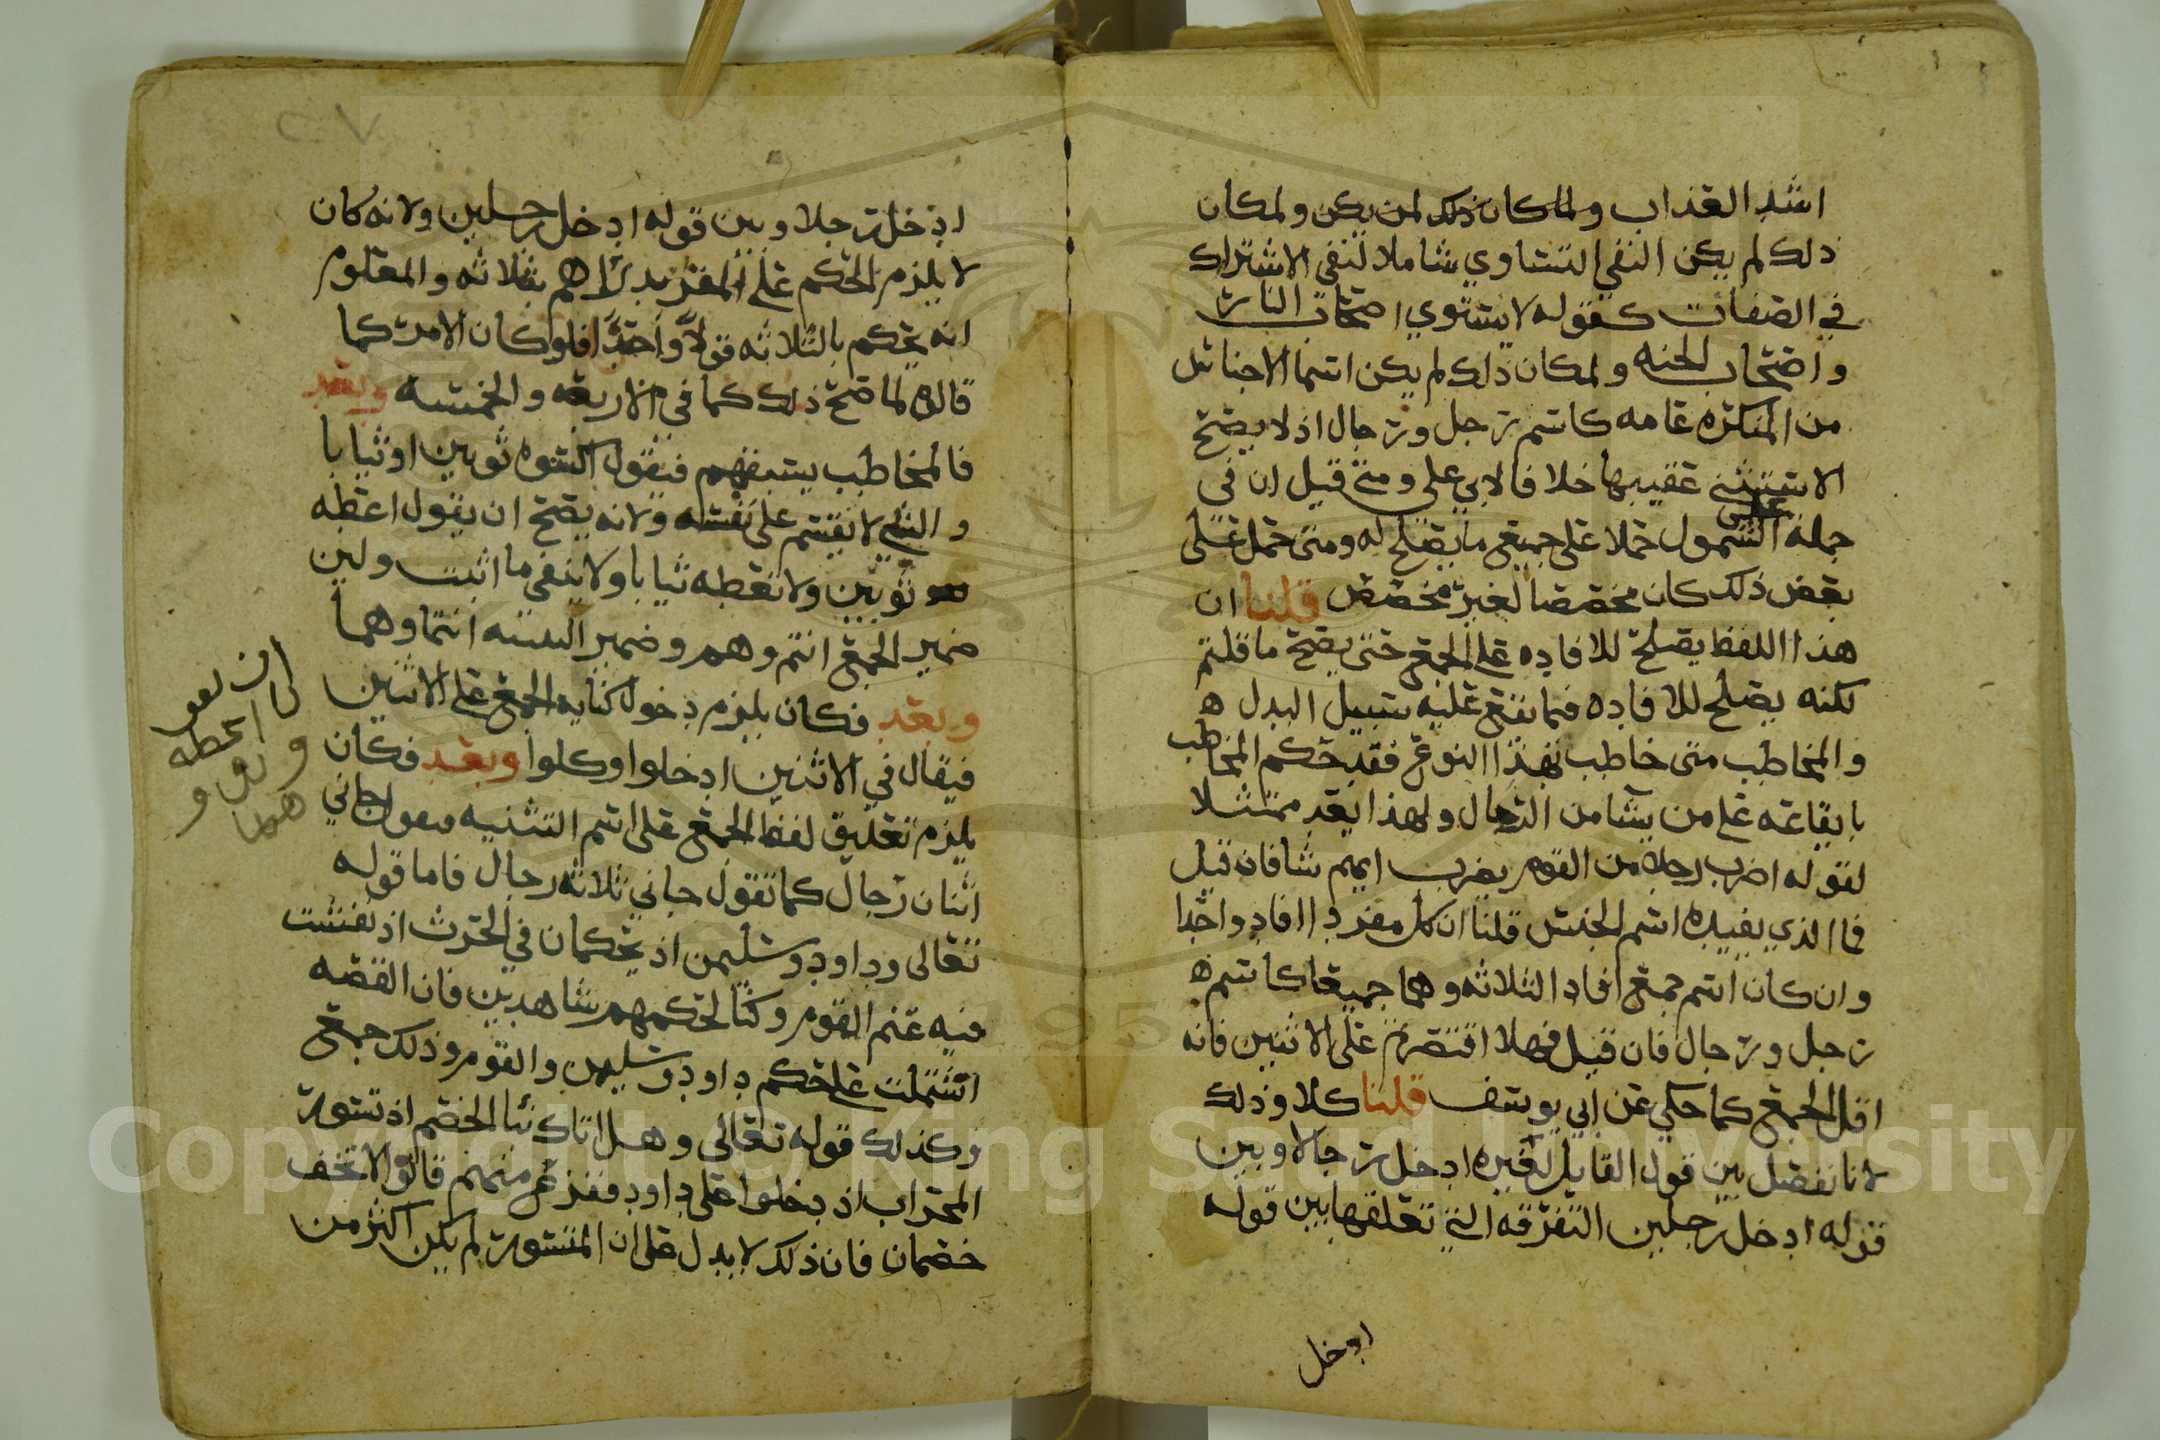 اشد العذاب ولما كان ذلك لمن يكن ولمكان
ذلك لم يكن النفي التساوي شاملا لنفي الاشتراك
في الصفات كقوله لا يستوي اصحاب النار
واصحاب الجنه ولمكان ذلك لم يكن اسما الاجناس
من المنكره عامه كاسم رجل ورجال اذ لا يصح
الاستثنى عقيبها خلافا لابي علي ومتى قيل ان في
جمله الشمول حملا على جميع ما يصلح له ومتى حمل على
بعض ذلك كان مخصصا لغير مخصص قلنا ان
هذا اللفظ يصلح للافاده على الجمع حتى يصح ما قلتم
لكنه يصلح للافاده فيما يقع عليه سبيل البدل ه
والمخاطب متى خاطب بهذا النوع فقد حكم المخاطب
بايقاعه على من يشا من الرجال ولهذا يعد ممتثلا
لقوله اضرب رجلا من القوم بضرب ايهم شا فان قيل
فما الذي يفيده اسم الجنس قلنا ان كان مفردا افاد واحدا
وان كان اسم جمع افاد الثلاثه وهما جميعا كاسم ه
رجل ورجال فان قيل فهلا اقتصرتم على الاثنين فانه
اقل الجمع كما حكي عن ابي يوسف قلنا كلا وذلك
لانا نفصل بين قول القايل لغيره ادخل رجالا وبين
قوله ادخل رجلين التفرقه التي نعلقها بين قوله
ادخل
ادخل رجلا وبين قوله ادخل رجلين ولانه كان
لا يلزم الحكم على المقر بدراهم بثلاثه والمعلوم
انه يحكم بالثلاثه قولا واحدا فلو كان الامر كما
قالوه لما صح ذلك كما في الاربعه والخمسه وبعد
فالمخاطب يستفهم فيقول اكسوه ثوبين او ثيابا
والشي لا يقسم على نفسه ولانه يصح ان يقول اعطه
ثوبين ولا تعطه ثيابا ولا ينفي ما اثبت وليس
ضمير الجمع انتم وهم وضمير التثنيه انتما وهما
وبعد فكان يلزم دخول كنايه الجمع على الاثنين
فيقال في الاثنين ادخلوا وكلوا وبعد فكان
يلزم تعليق لفظ الجمع على اسم التثنيه فيقول جاني
اثنان رجال كما تقول جاني ثلاثه رجال فاما قوله
تعالى وداود وسليمن اذ يحكمان في الحرث اذ نفشت
فيه غنم القوم وكنا لحكمهم شاهدين فان القصه
اشتملت على حكم داود وسليمن والقوم وذلك جمع
وكذلك قوله تعالى وهل اتاك نبا الخصم اذ تسوروا
المحراب اذ دخلوا على داود ففزع منهم قالوا لا تخف
خصمان فان ذلك لا يدل على ان المتسور لم يكن اكثر من
اعطه
هما
Copyright © King Saud University